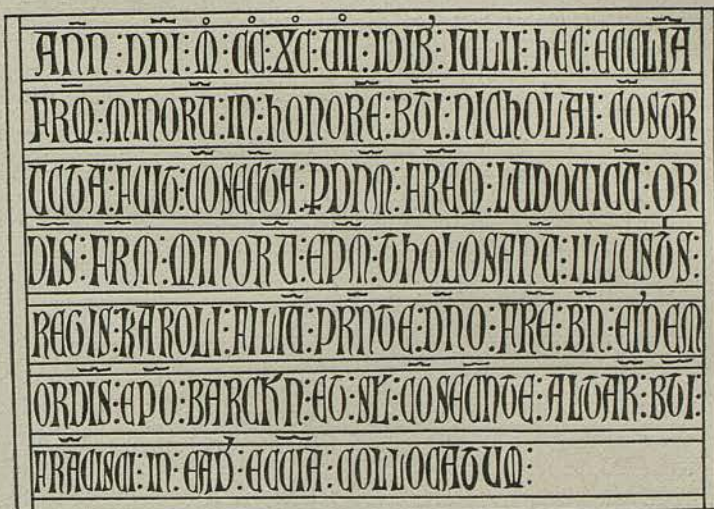 ANN : DNI : M : CC : XC : VII : IDIB' : IULII : HEC : ECCLIA
FRM : MINORU : IN : HONORE : BTI : NICHOLAI : COSTR
UCTA : FUIT : COSECTA : P DNM : FREM : LUDOVICU : OR
DIS : FRM : MINORU : EPM : THOLOSANU : ILLUSTS :
REGIS : KAROLI : FILIU : PRNTE : DNO : FRE : BN : EI'DEM
ORDIS : EPO : BARCKN : ET : SL : COSECNTE : ALTAR : BTI :
FRACISCI : IN : EAD' : ECCIA : COLLOCATUM :